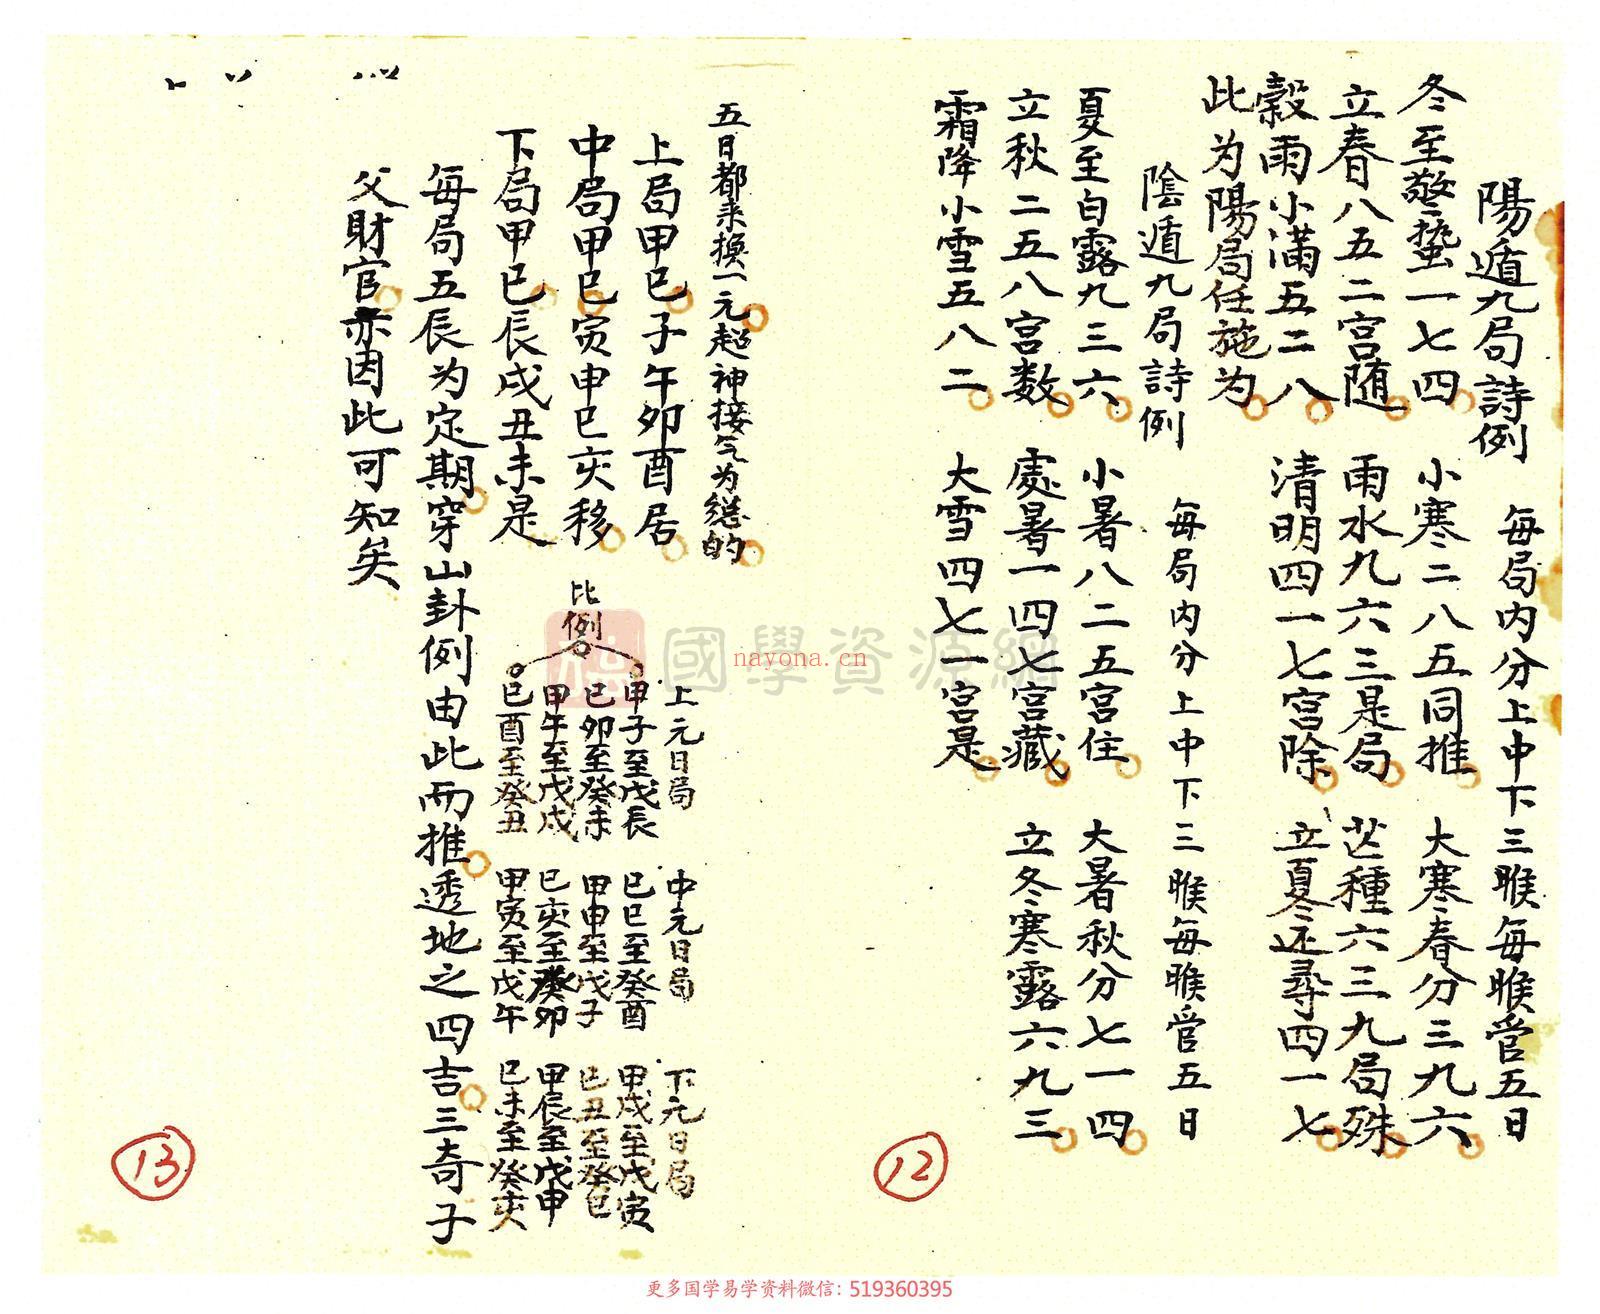 陽遁九局詩例　每局内分上中下三睺每睺管五日
冬至驚蛰一七四　小寒二八五同推　大寒春分三九六
立春八五二宫随　雨水九六三是局　芒種六三九局殊
穀雨小满五二八　清明四一七宫除　立夏还尋四一七
此为陽局任施为
陰遁九局詩例　每局内分上中下三睺每睺管五日
夏至白露九三六　小暑八二五宫住　大暑秋分七一四
立秋二五八宫数　處暑一四七宫藏　立冬寒露六九三
霜降小雪五八二　大雪四七一宫是
12
五日都来换一元超神接气为總的
上局甲已子午卯酉居
中局甲已寅申已亥移
下局甲已辰戌丑未是
比例
上元日局　中元日局　下元日局
甲子至戊辰　已巳至癸酉　甲戌至戊寅
已卯至癸未　甲申至戊子　已丑至癸巳
甲午至戊戌　已亥至癸卯　甲辰至戊申
已酉至癸丑　甲寅至戊午　已未至癸亥
每局五辰为定期穿山卦例由此而推透地之四吉三奇子
父財官亦因此可知矣
13
國學資源網
nayona.cn
更多国学易学资料微信：519360395